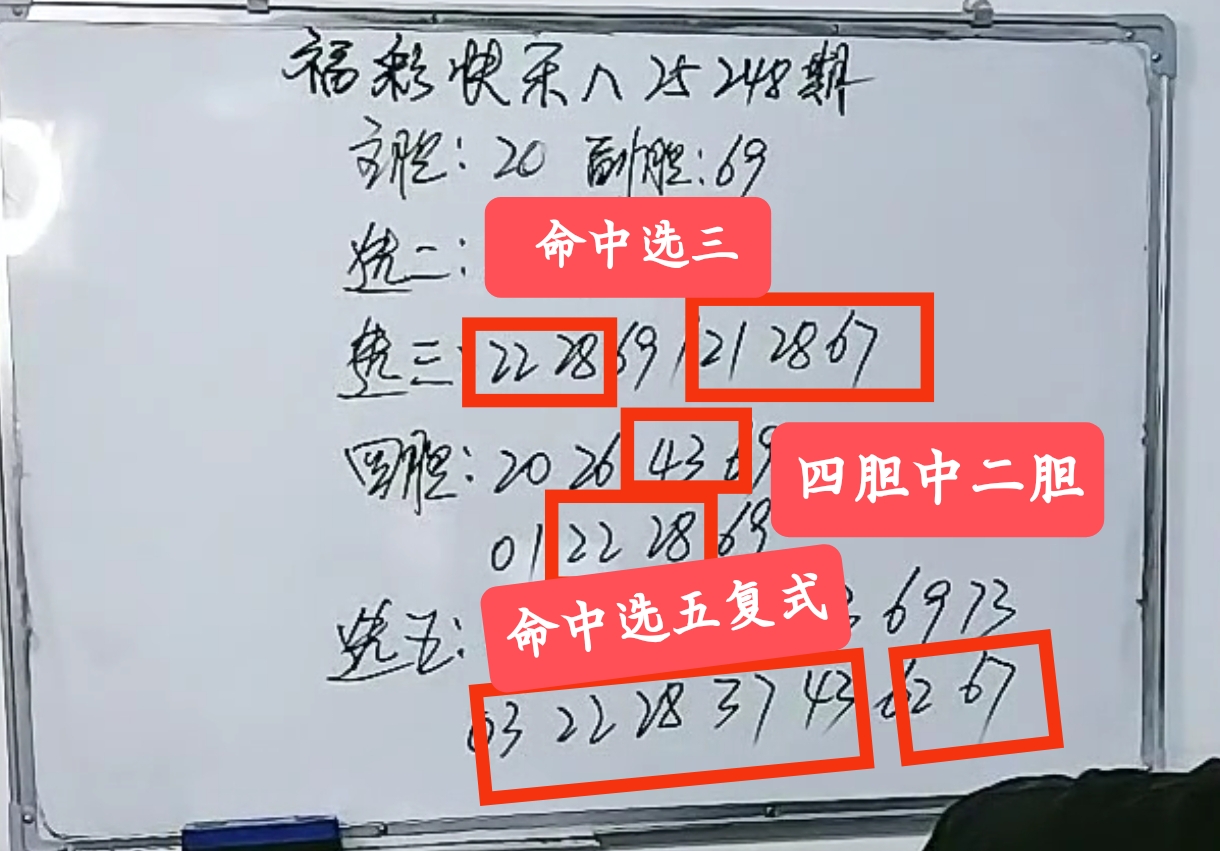 福彩快乐八25248期
主胆：20 副胆：69
选二：
命中选三
选三 22 28 69 | 21 28 67
四胆：20 26 43 69
四胆中二胆
01 22 28 69
选五：
命中选五复式
69 73
03 22 28 37 43 62 67